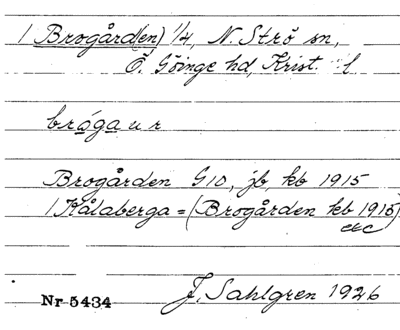 1 Brogård(en) 1/4, N. Strö sn,
Ö. Göinge hd, Krist. l
brågaur
Brogården G10, jb, kb 1915
1 Kålaberga = (Brogården kb 1915)
etc
Nr 5434 J. Sahlgren 1926